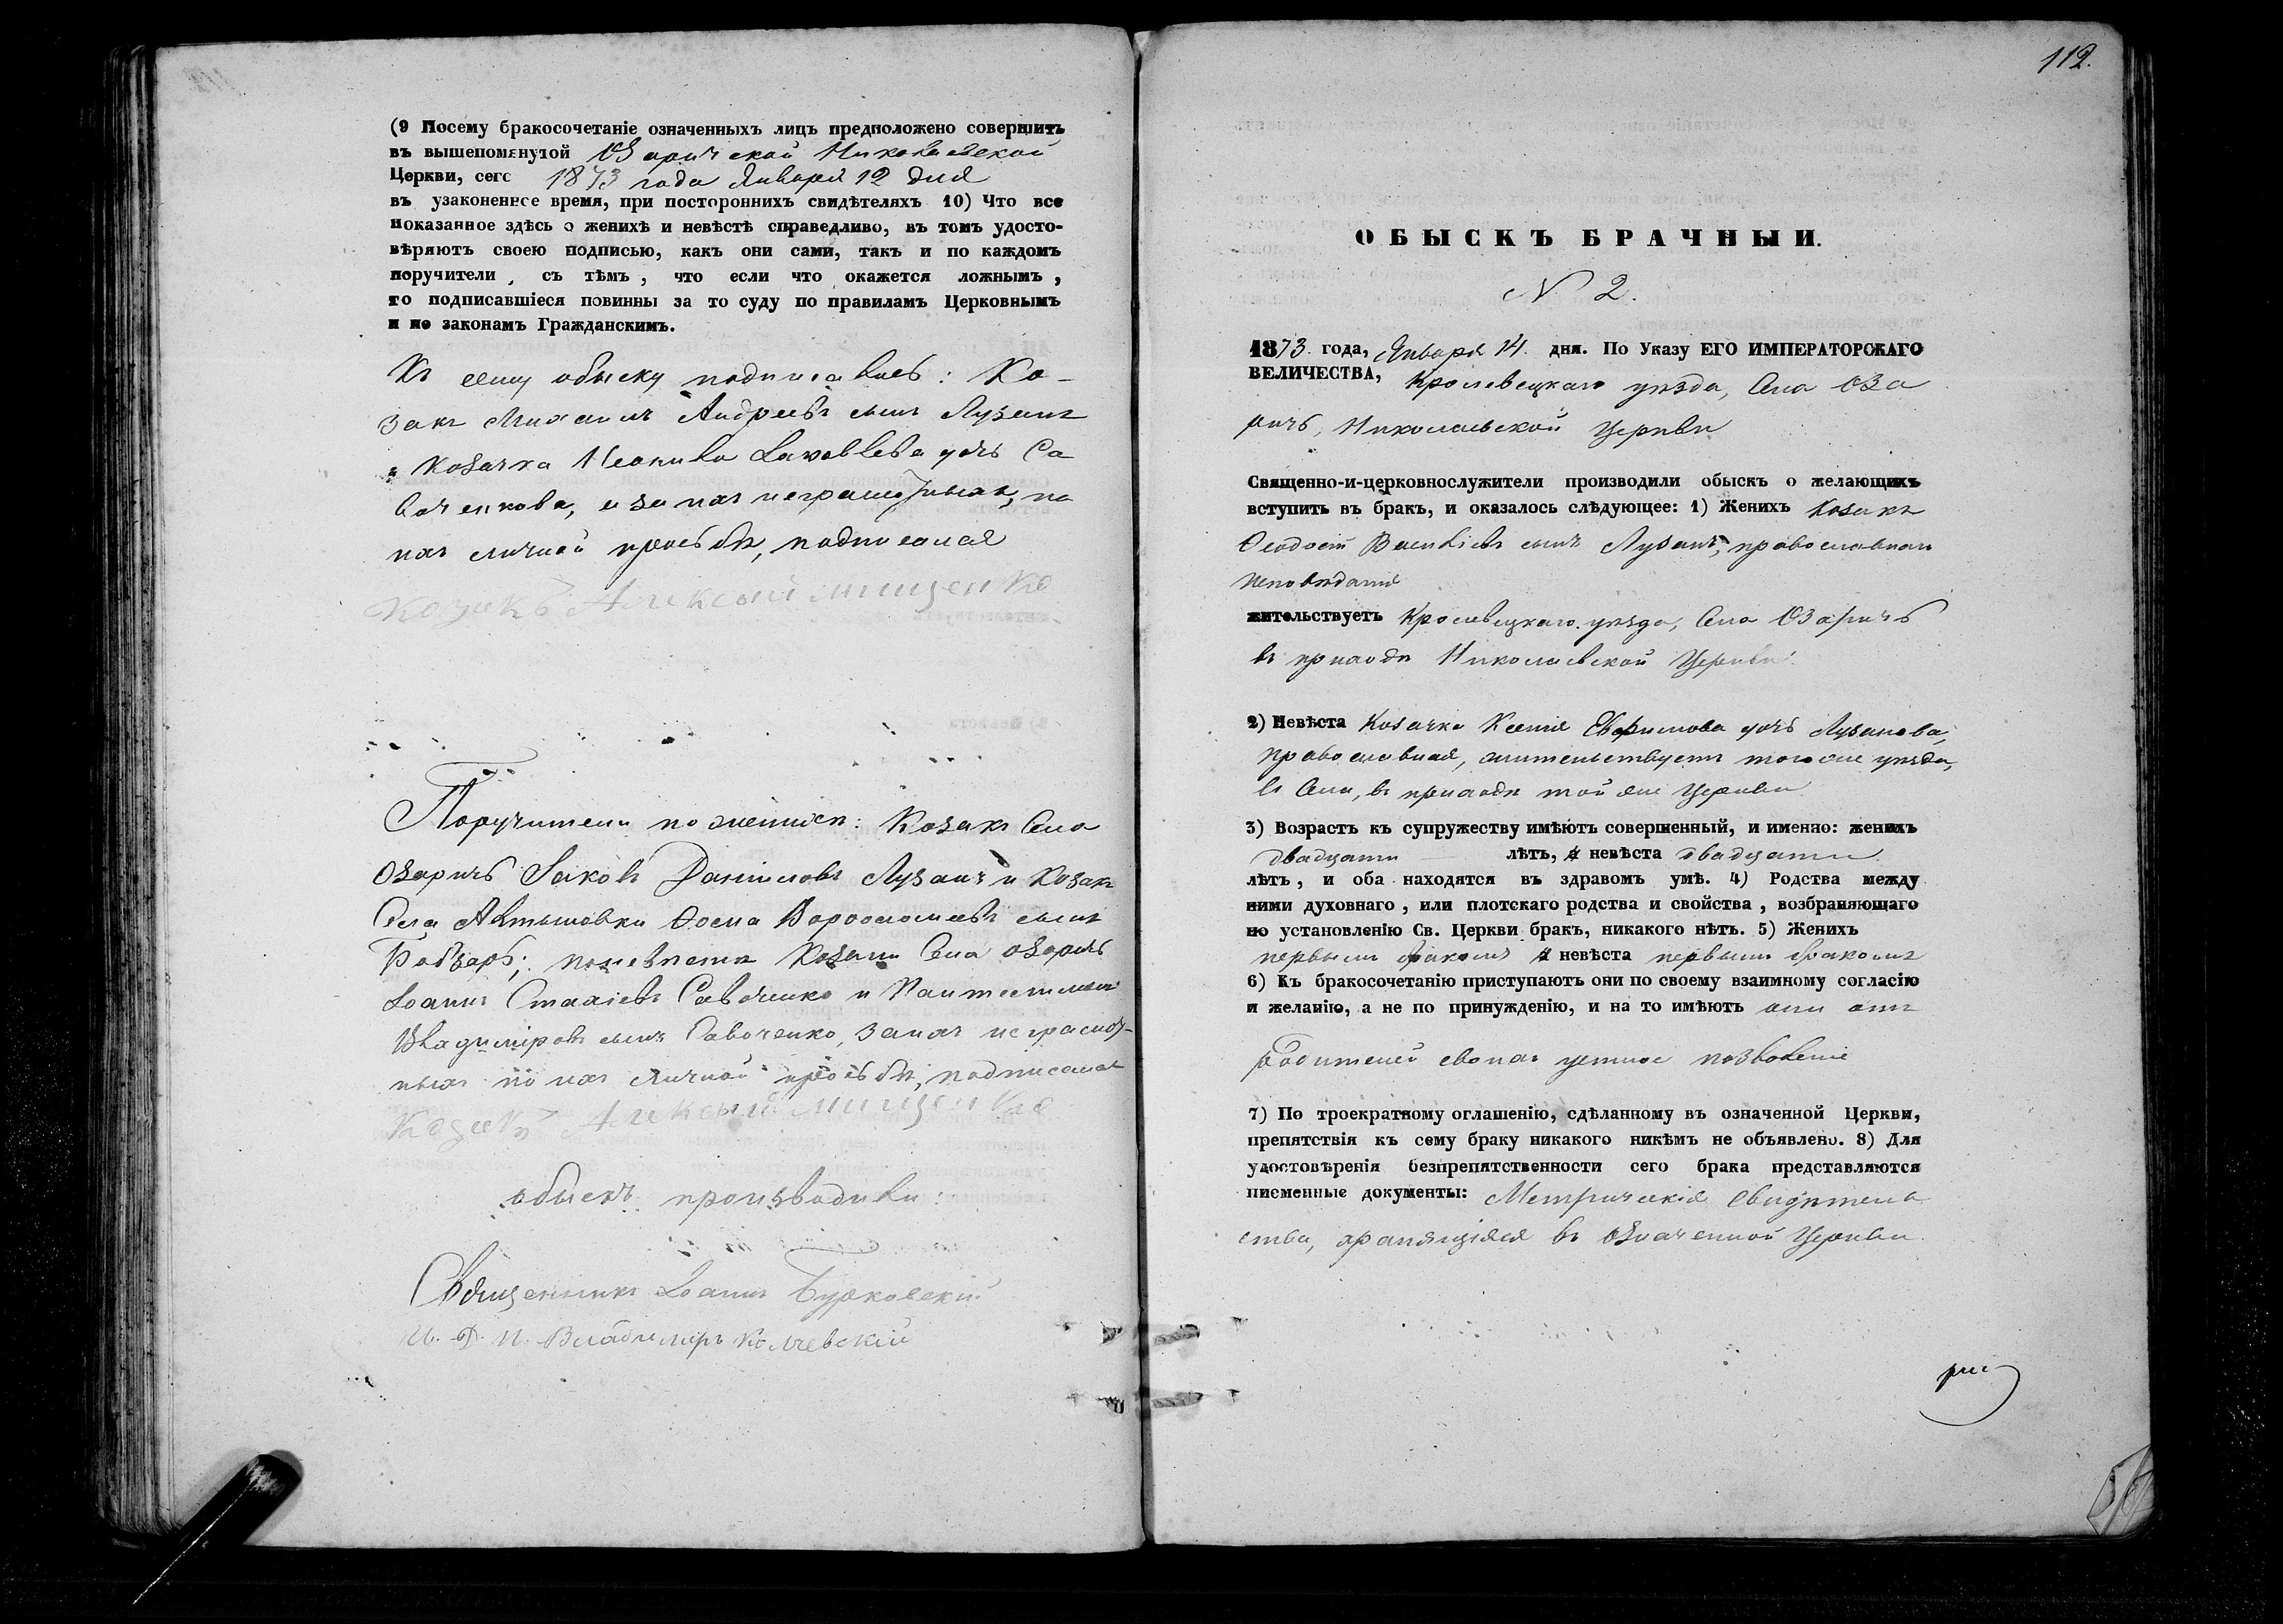 (9 Посему бракосочетаніе означенныхъ лицъ предположено совершить
въ вышепомянутой Озаричской Николаевской
Церкви, сего 1873 года Января 12 дня
въ узаконенное время, при постороннихъ свидѣтеляхъ 10) Что все
показанное здѣсь о женихѣ и невѣстѣ справедливо, въ томъ удосто-
вѣряютъ своею подписью, какъ они сами, такъ и по каждомъ
поручители, съ тѣмъ, что если что окажется ложнымъ,
то подписавшіеся повинны за то суду по правиламъ Церковнымъ
и по законамъ Гражданскимъ.
Къ сему обыску подписались: Ко-
закъ Михаилъ Андреевъ сынъ Лузанъ
и Козачка Іаковлева дочь Са
воченкова, а за ихъ неграмотныхъ, по
ихъ личной прозьбѣ, подписался
Козакъ Алексый мищенко
Поручители по женихѣ: Козакъ Села
Озаричъ Іаковъ Даніиловъ Лузанъ и Козакъ
Села Автышовки Ѳома сынъ
по невѣстѣ Козаки Села Озаричъ
Іоаннъ Стахіевъ Савоченко и
Владиміровъ сынъ Савоченко, за ихъ неграмот-
ныхъ по ихъ личной прозьбѣ, подписался
Козакъ Алексый мищенко
обыскъ производили:
Священникъ Іоаннъ Бурковскій
И. Д. П. Владимиръ
112.
ОБЫСКЪ БРАЧНЫЙ.
N 2.
1873. года, Января 14. дня. По Указу ЕГО ИМПЕРАТОРСКАГО
ВЕЛИЧЕСТВА, Кролевецкаго уѣзда, Села Оза
ричъ, Николаевской Церкви
Священно-и-церковнослужители производили обыскъ о желающихъ
вступить въ бракъ, и оказалось слѣдующее: 1) Женихъ Козакъ
Ѳеодосій Василіевъ сынъ Лузанъ, православнаго
исповѣданія
жительствуетъ Кролевецкаго уѣзда, Села Озаричъ
въ приходѣ Николаевской Церкви.
2) Невѣста Козачка Ксенія Евфимова дочь Лузанова,
православная, жительствуетъ того же уѣзда,
и Села, въ приходѣ той же Церкви
3) Возрастъ къ супружеству имѣютъ совершенный, и именно: женихъ
двадцати лѣтъ, а невѣста двадцати
лѣтъ, и оба находятся въ здравомъ умѣ. 4) Родства между
ними духовнаго, или плотскаго родства и свойства, возбраняющаго
по установленію Св. Церкви бракъ, никакого нѣтъ. 5) Женихъ
первымъ бракомъ а невѣста первымъ бракомъ
6) Къ бракосочетанію приступаютъ они по своему взаимному согласію
и желанію, а не по принужденію, и на то имѣютъ они отъ
родителей своихъ устное позволеніе
7) По троекратному оглашенію, сдѣланному въ означенной Церкви,
препятствія къ сему браку никакого никѣмъ не объявлено. 8) Для
удостовѣренія безпрепятственности сего брака представляются
писменные документы: Метрическія свидѣтель
ства, хранящіяся въ означенной Церкви.